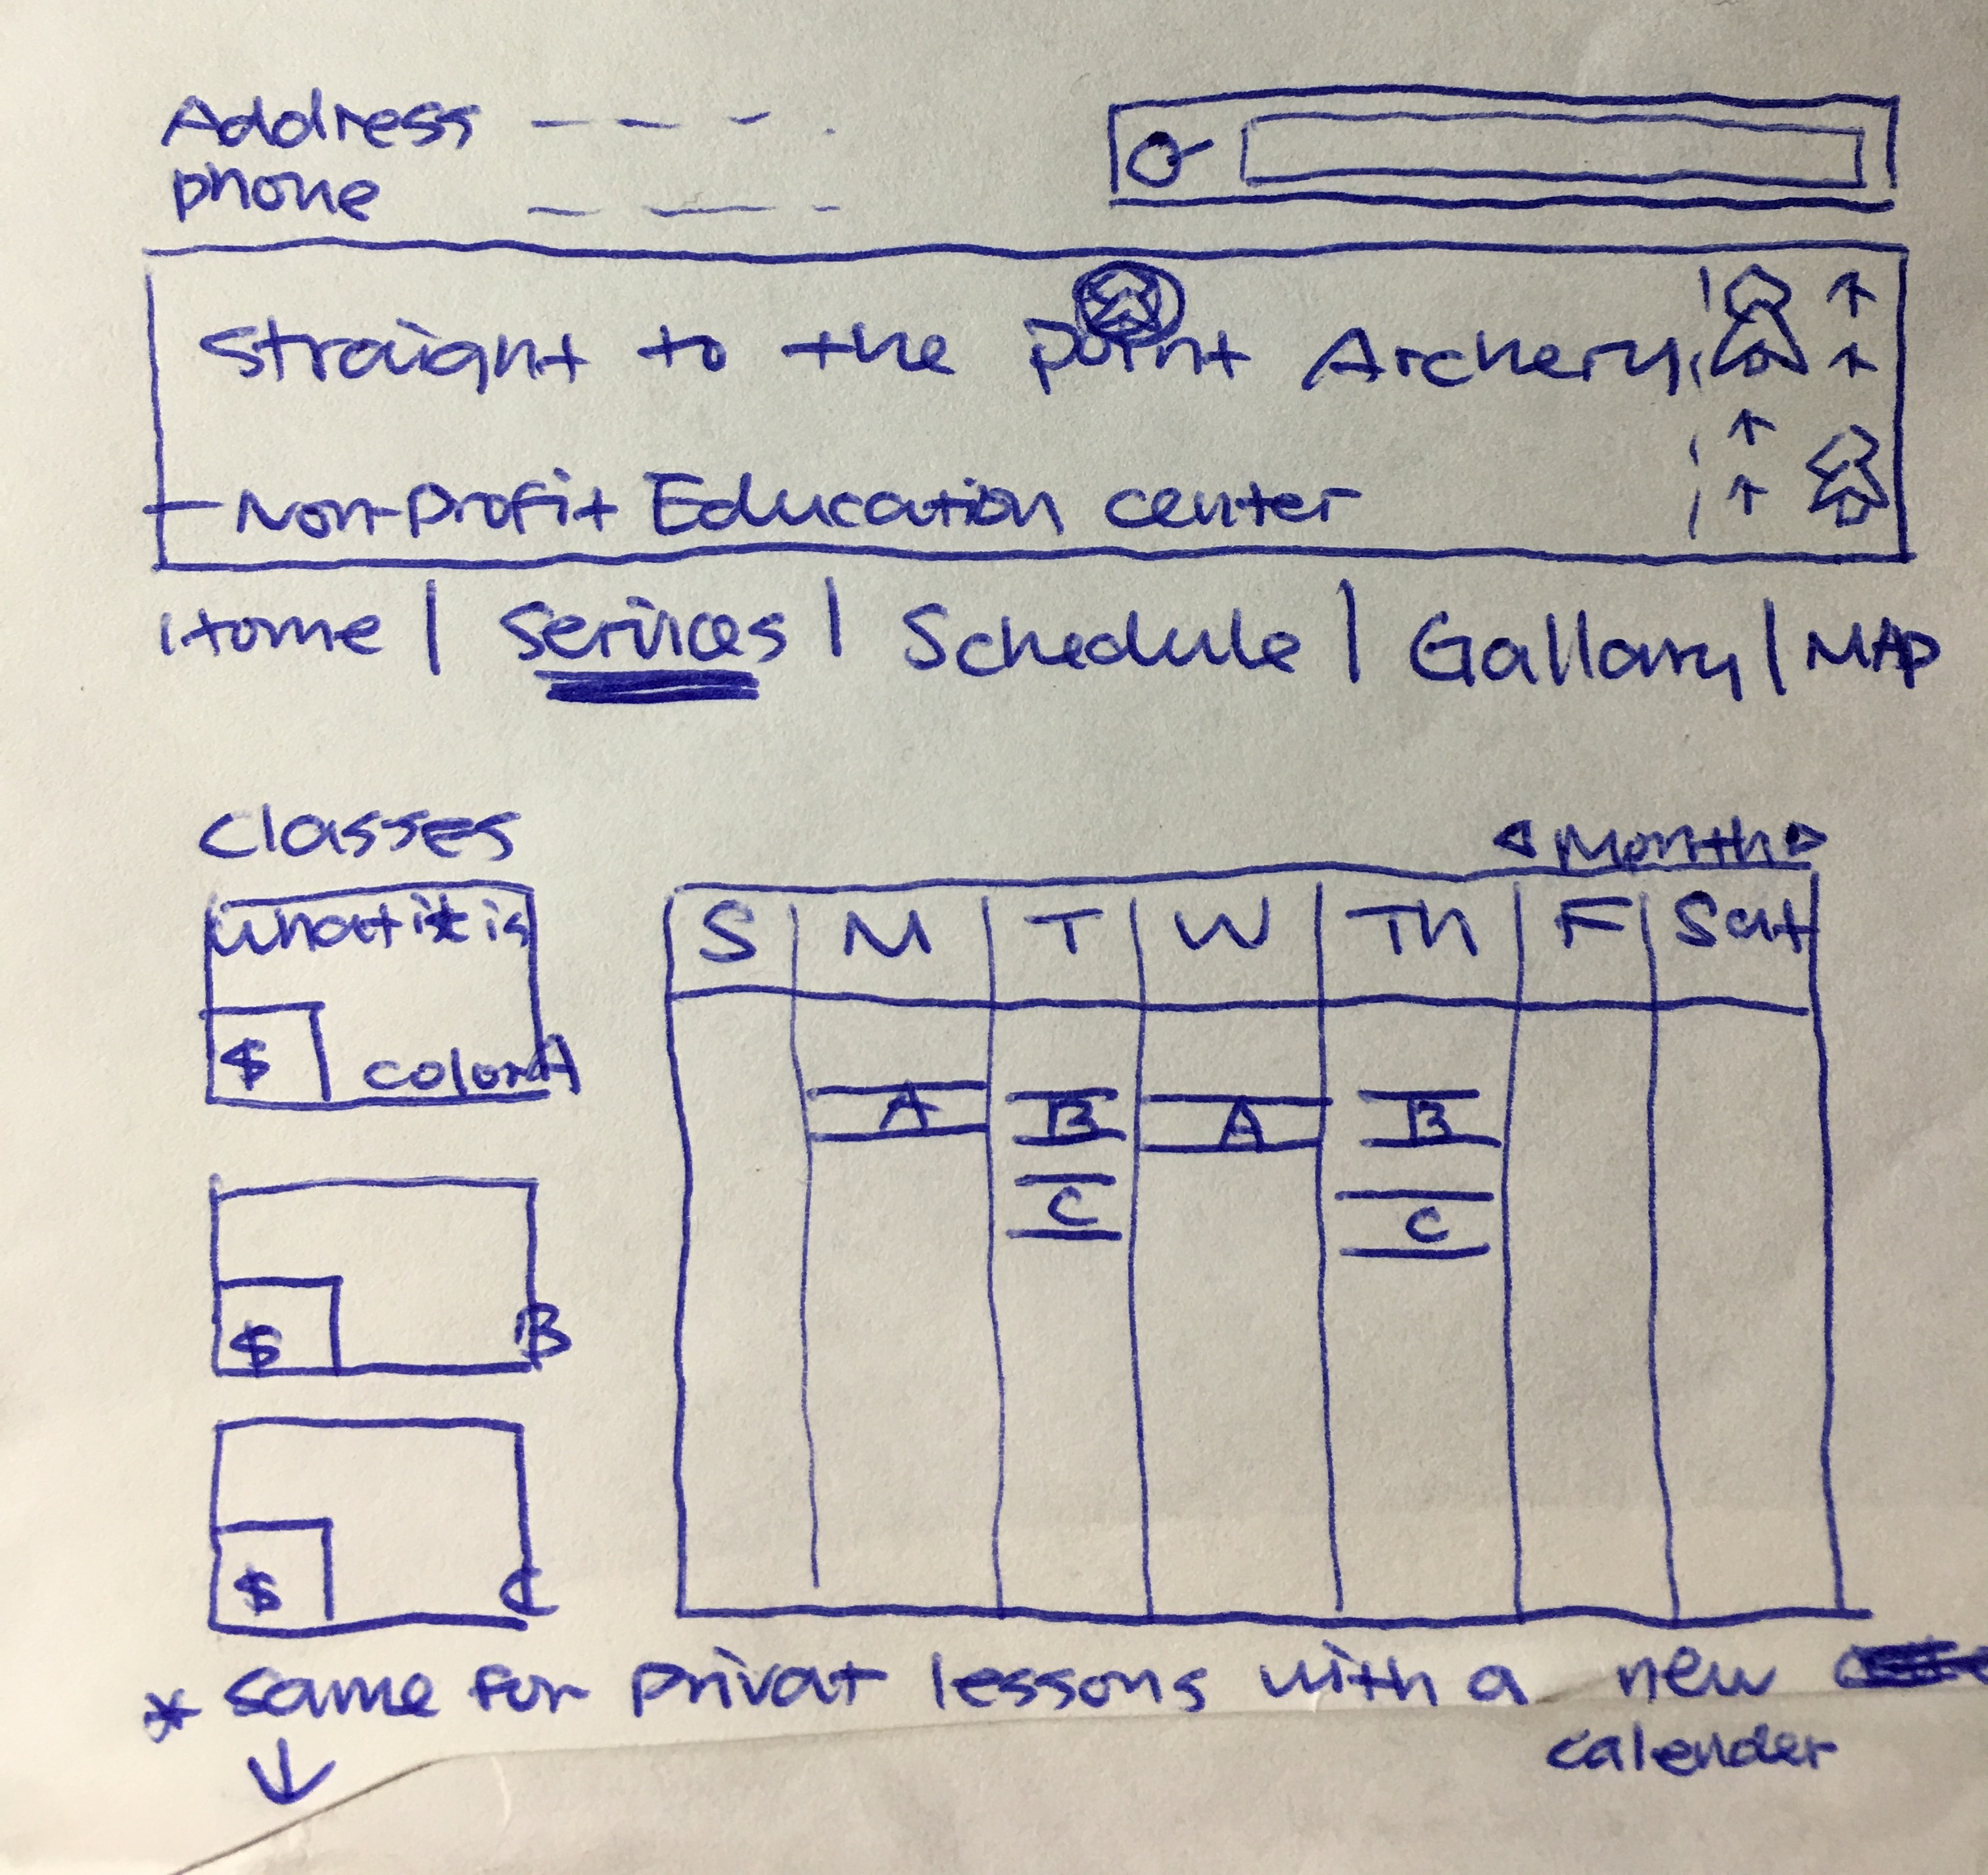 Address
phone
Straight to the point Archery
- Non-Profit Education center
Home | Services | Schedule | Gallary | MAP
Classes
Month
what it is
$ color A
S M T W Th F Sat
A B A B
C C
$ B
$ C
* same for privat lessons with a new
calender